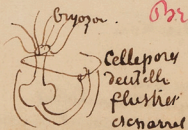 bryozoa.
Br
Cellepores
dentelle
flustres
escharres